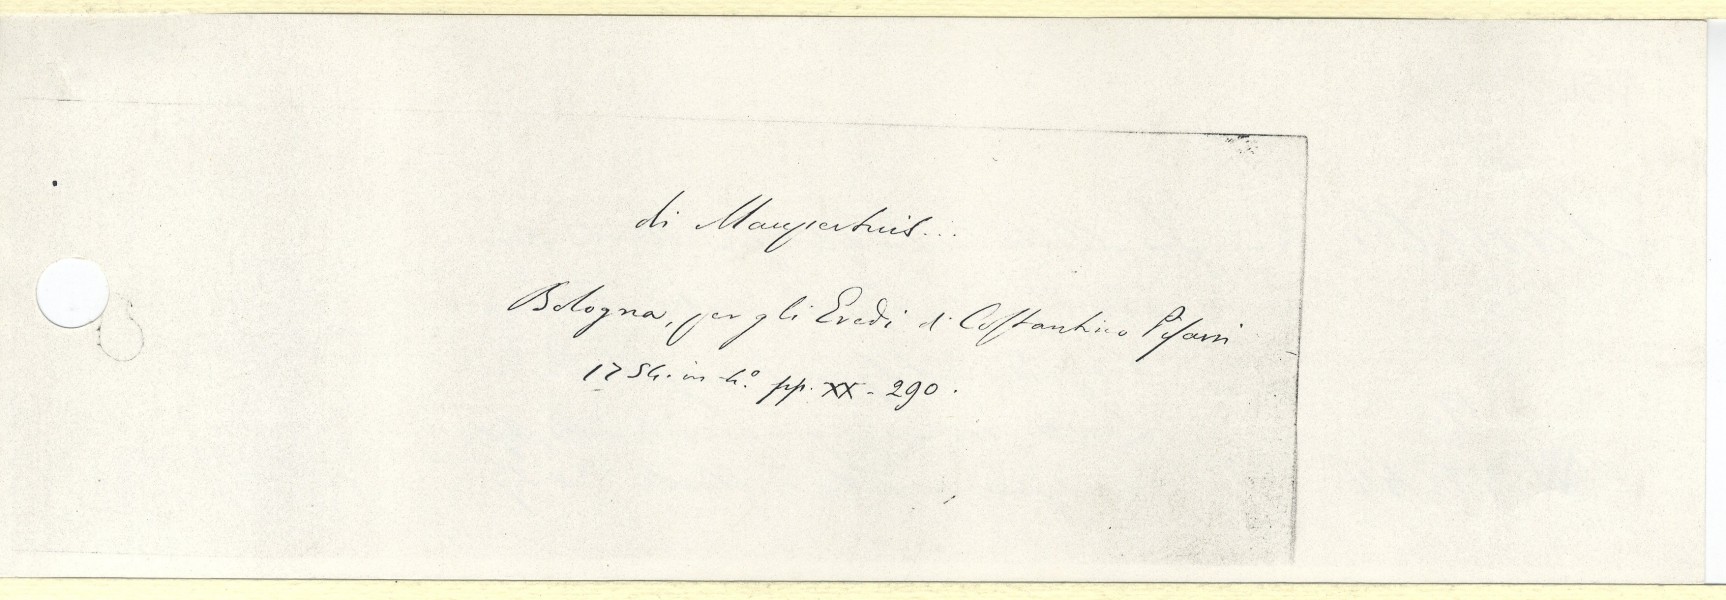 di Maupertuis...
Bologna, per gli Eredi di Costantino Pisarri
1754. in 4.º pp. XX - 290.